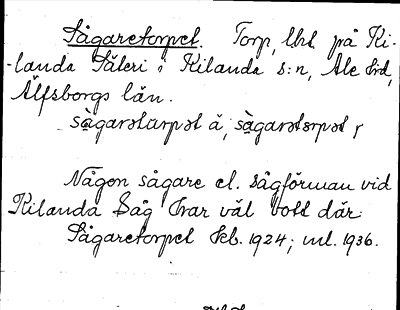 Sågaretorpet. Torp, lht på Ki-
-landa Säteri i Kilanda s:n, Ale hd,
Älfsborgs län.
sàgarətarpət å, sàgarətorpət,
Någon sågare el. sågförman vid
Kilanda Såg har väl bott där.
Sågaretorpet kb. 1924; ml. 1936.